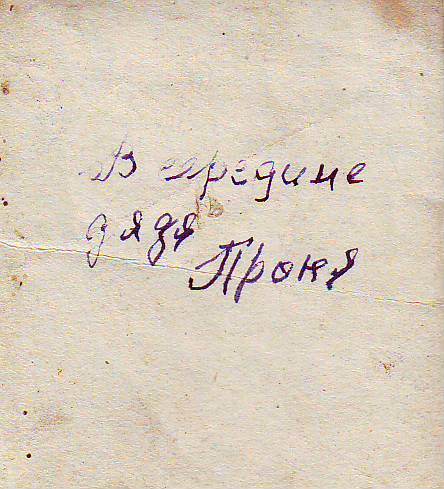 В середине
дядя
Проня